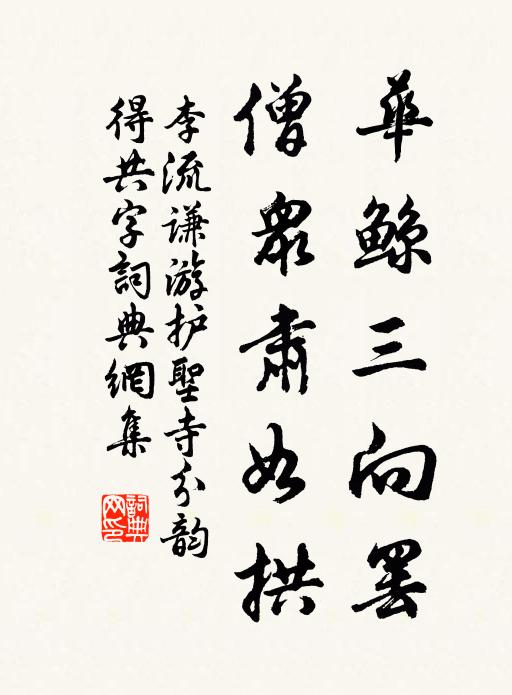 華鲸三向罢
僧眾肅如拱
李流谦游护聖寺分韵
得共字詞典網集
詞典網印